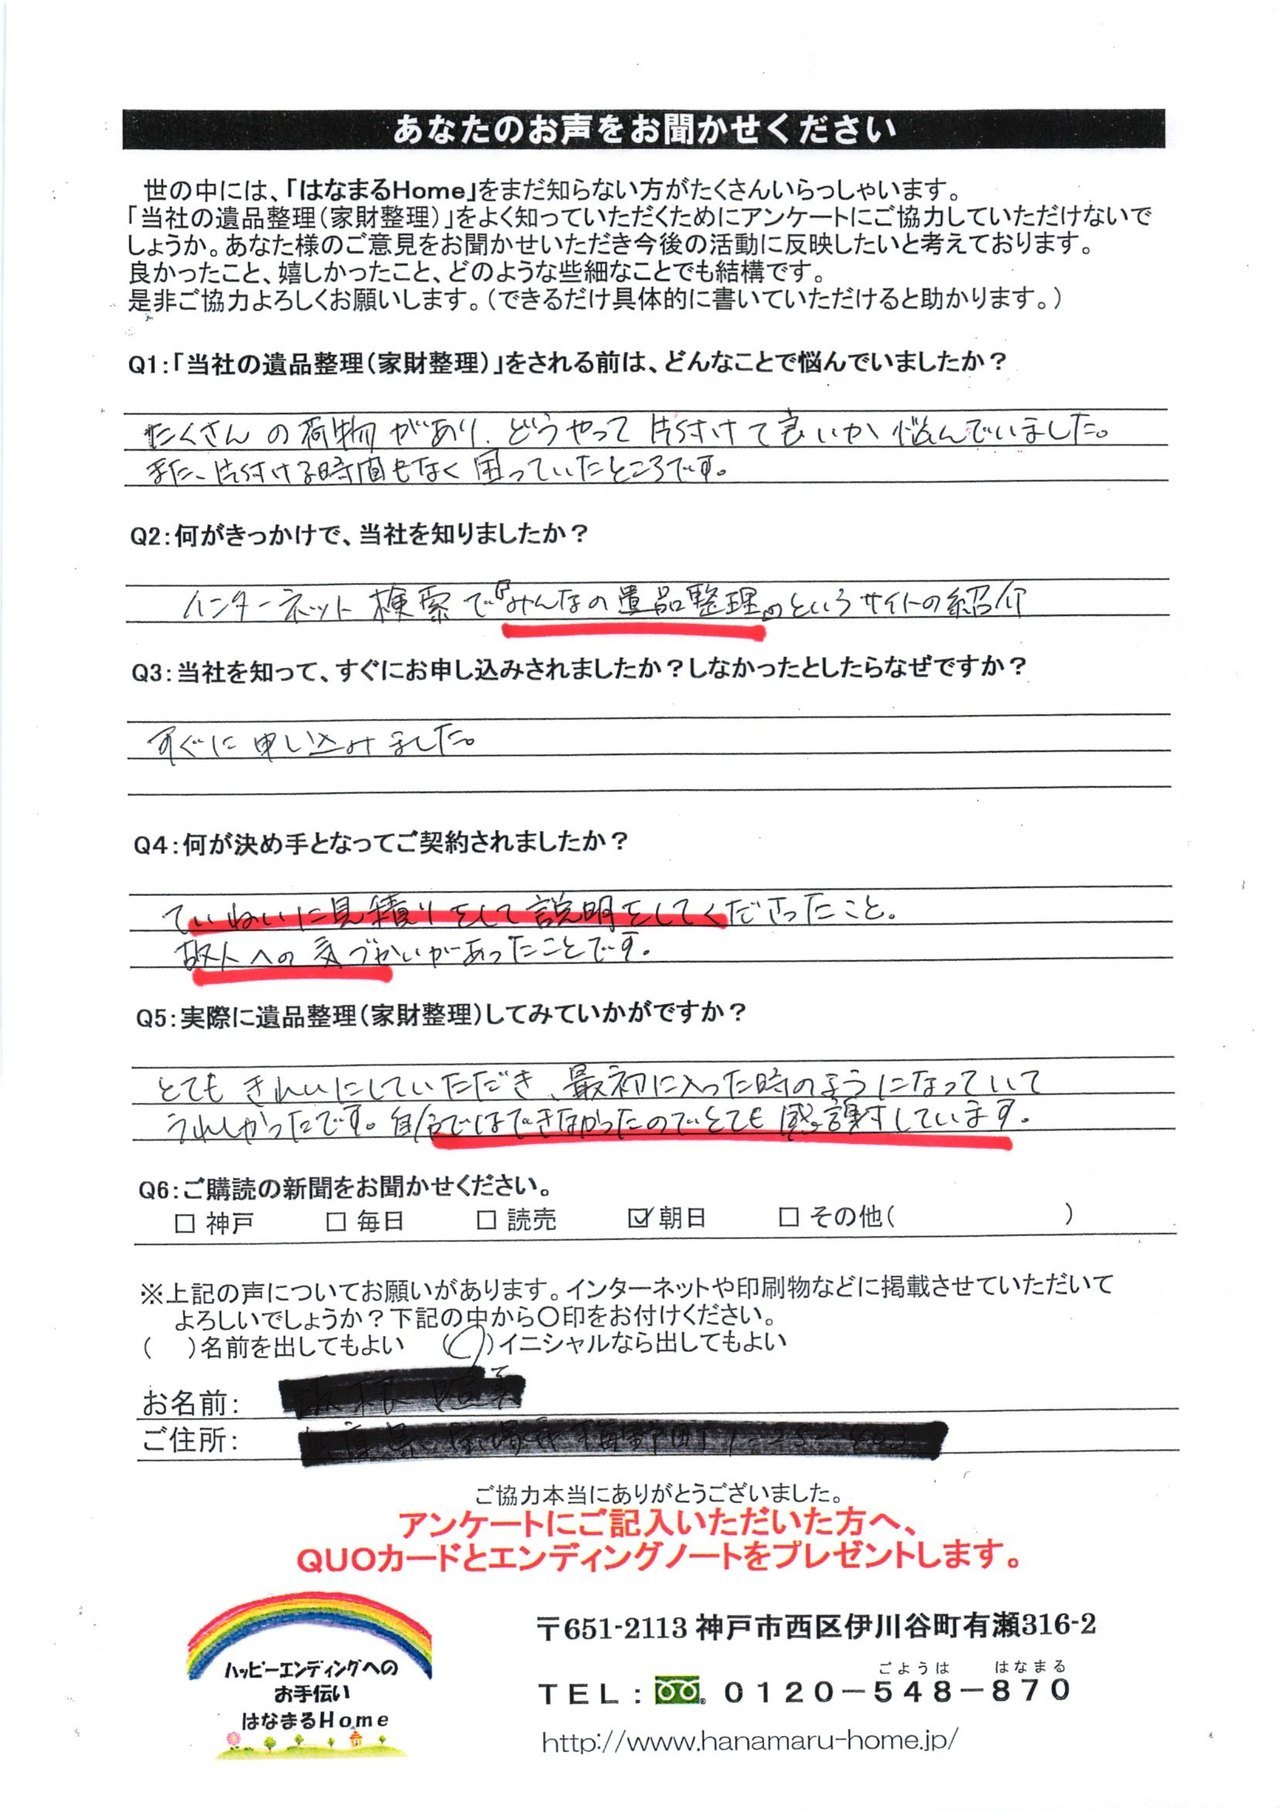 あなたのお声をお聞かせください
世の中には、「はなまるHome」をまだ知らない方がたくさんいらっしゃいます。
「当社の遺品整理（家財整理）」をよく知っていただくためにアンケートにご協力していただけないで
しょうか。あなた様のご意見をお聞かせいただき今後の活動に反映したいと考えております。
良かったこと、嬉しかったこと、どのような些細なことでも結構です。
是非ご協力よろしくお願いします。（できるだけ具体的に書いていただけると助かります。）
Q1：「当社の遺品整理（家財整理）」をされる前は、どんなことで悩んでいましたか？
たくさんの荷物があり、どうやって片付けて良いか悩んでいました。
また、片付ける時間もなく困っていたところです。
Q2：何がきっかけで、当社を知りましたか？
インターネット検索で『みんなの遺品整理』というサイトの紹介
Q3：当社を知って、すぐにお申し込みされましたか？しなかったとしたらなぜですか？
すぐに申し込みました。
Q4：何が決め手となってご契約されましたか？
ていねいに見積りをして説明をしてくださったこと。
故人への気づかいがあったことです。
Q5：実際に遺品整理（家財整理）してみていかがですか？
とてもきれいにしていただき、最初に入った時のようになっていて
うれしかったです。自分ではできなかったのでとても感謝しています。
Q6：ご購読の新聞をお聞かせください。
□ 神戸 □ 毎日 □ 読売 ☑ 朝日 □ その他（ ）
※上記の声についてお願いがあります。インターネットや印刷物などに掲載させていただいて
よろしいでしょうか？下記の中から〇印をお付けください。
（ ）名前を出してもよい （〇）イニシャルなら出してもよい
お名前：
ご住所：
ご協力本当にありがとうございました。
アンケートにご記入いただいた方へ、
QUOカードとエンディングノートをプレゼントします。
ハッピーエンディングへの
お手伝い
はなまるHome
〒651-2113 神戸市西区伊川谷町有瀬316-2
ごようは はなまる
TEL： 0120－548－870
http://www.hanamaru-home.jp/